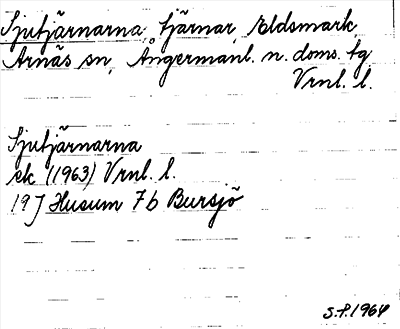 Sjutjärnarna, tjärnar, Eldsmark,
Arnäs sn, Ångermanl. n. doms. tg
Vrnl. l.
Sjutjärnarna
ek (1963) Vrnl. l.
19 J Husum 7b Bursjö
S.P. 1964